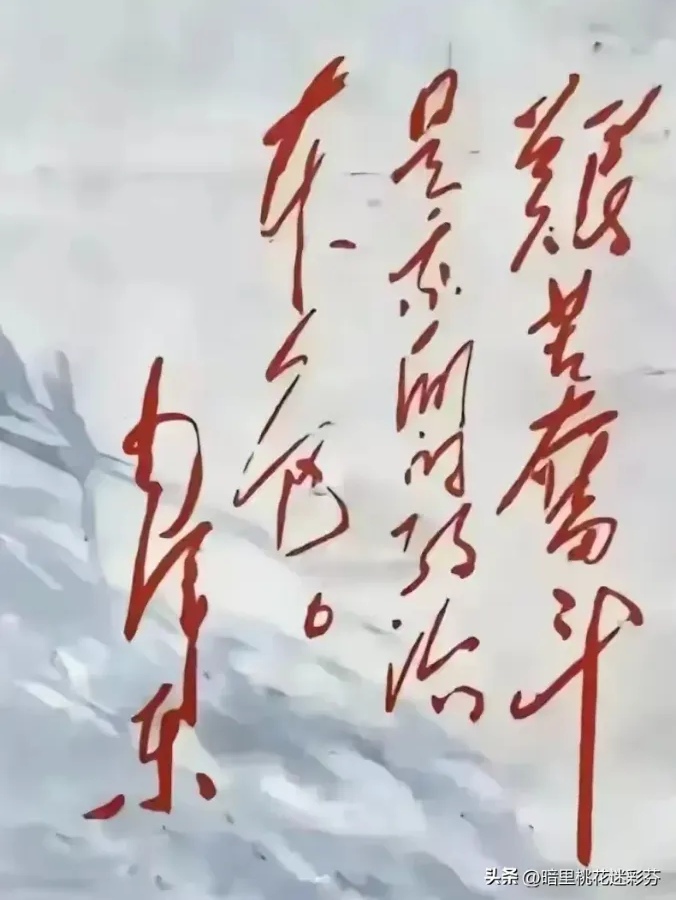 艱苦奮斗
是我们的政治
本色。
毛泽东
头条 @暗里桃花迷彩芬